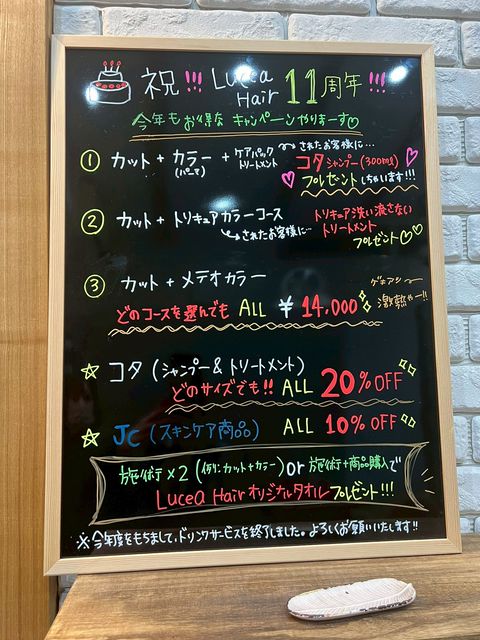 祝!!! Lucea Hair 11周年!!!
今年もお得なキャンペーンやりまーす♡
① カット + カラー(パーマ) + ケアパックトリートメント
されたお客様に…
コタシャンプー(300ml)
プレゼントしちゃいます!!!
② カット + トリキュアカラーコース
されたお客様に…
トリキュア洗い流さない
トリートメント
プレゼント♡♡
③ カット + メテオカラー
どのコースを選んでも ALL ¥14,000
ゲキアツ
激熱やー!!
☆ コタ (シャンプー & トリートメント)
どのサイズでも!! ALL 20%OFF
☆ JC (スキンケア商品) ALL 10%OFF
施術×2 (例:カット+カラー) or 施術+商品購入で
Lucea Hair オリジナルタオルプレゼント!!!
※今年度をもちまして、ドリンクサービスを終了しました。よろしくお願いいたします!!